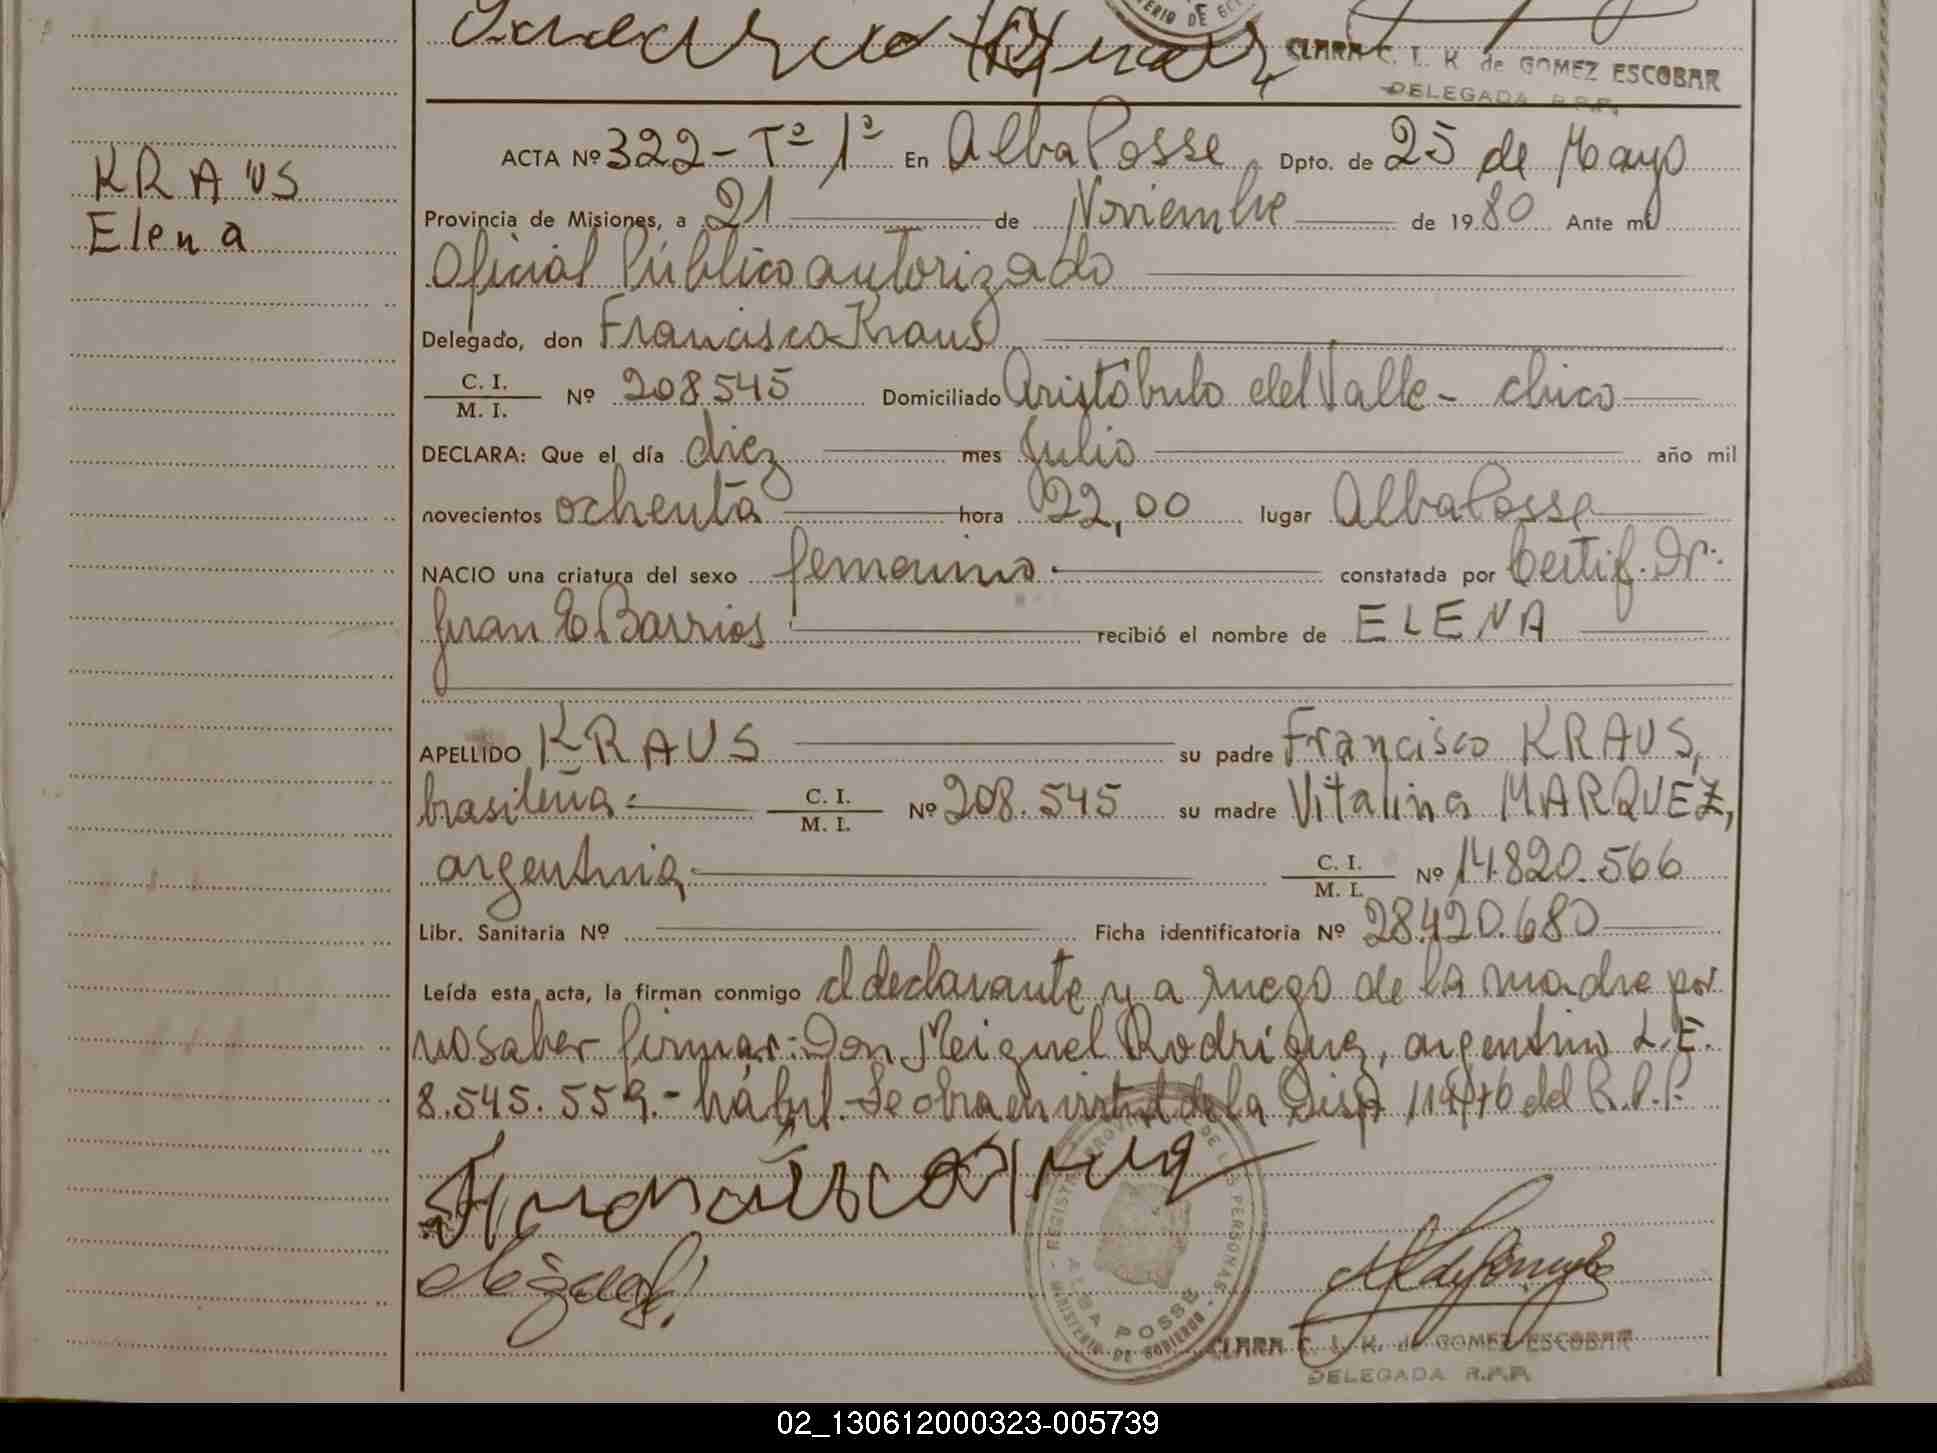 CLARA C. I. K. de GOMEZ ESCOBAR
DELEGADA R.P.P.
KRAUS
Elena
ACTA Nº 322 - Tº 1º En Alba Posse Dpto. de 25 de Mayo
Provincia de Misiones, a 21 de Noviembre de 1980 Ante mí
Oficial Público autorizado
Delegado, don Francisco Kraus
C. I. / M. I. Nº 208545 Domiciliado Aristóbulo del Valle - chico
DECLARA: Que el día diez mes Julio año mil
novecientos ochenta hora 22,00 lugar Alba Posse
NACIO una criatura del sexo femenino constatada por Certif. Dr.
Juan E. Barrios recibió el nombre de ELENA
APELLIDO KRAUS su padre Francisco KRAUS,
brasileña C. I. / M. I. Nº 208.545 su madre Vitalina MARQUEZ,
argentina C. I. / M. I. Nº 14.820.566
Libr. Sanitaria Nº Ficha identificatoria Nº 28.420.680
Leída esta acta, la firman conmigo el declarante y a ruego de la madre por
no saber firmar: Don Meiguel Rodriguez, argentino L.E.
8.545.559.- hábil.- Se obra en virtud de la Disp. del R.P.P.
REGISTRO PROVINCIAL DE LAS PERSONAS
ALBA POSSE
MINISTERIO DE GOBIERNO
CLARA C. I. K. de GOMEZ ESCOBAR
DELEGADA R.P.P.
02_130612000323-005739